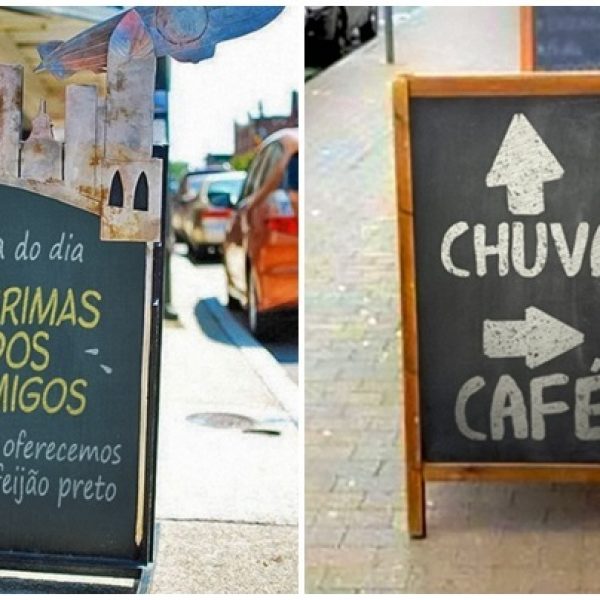 a do dia
RIMAS
DOS
MIGOS
oferecemos
feijão preto
CHUVA
CAFÉ